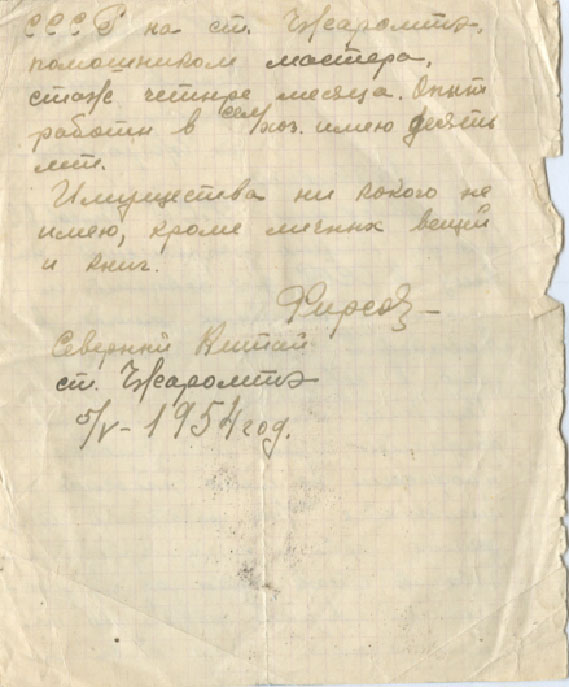 СССР на ст. Чжаромтэ,
помошником мастера,
стаж четыре месяца. Опыт
работы в сел/хоз. имею десять
лет.
Имущества ни какого не
имею, кроме личных вещей
и книг.
Фирсов
Северный Китай
ст. Чжаромтэ
5/V-1954 год.